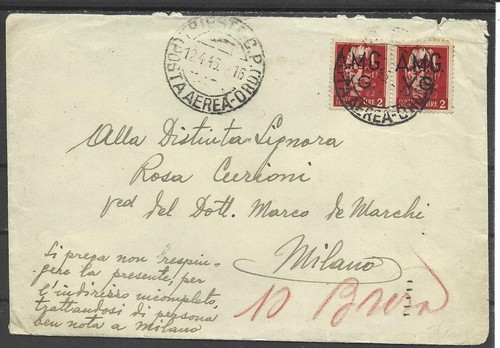 TRIESTE C.P.
12.4.46. 16
POSTA AEREA-ORD.
A.M.G. A.M.G.
V.G. V.G.
LIRE 2 LIRE 2
AEREA-ORD
Alla Distinta Signora
Rosa Curioni
ved del Dott. Marco de Marchi
Milano
Si prega non respin-
gere la presente, per
l'indirizzo incompleto,
trattandosi di persona
ben nota a Milano
10 Brera